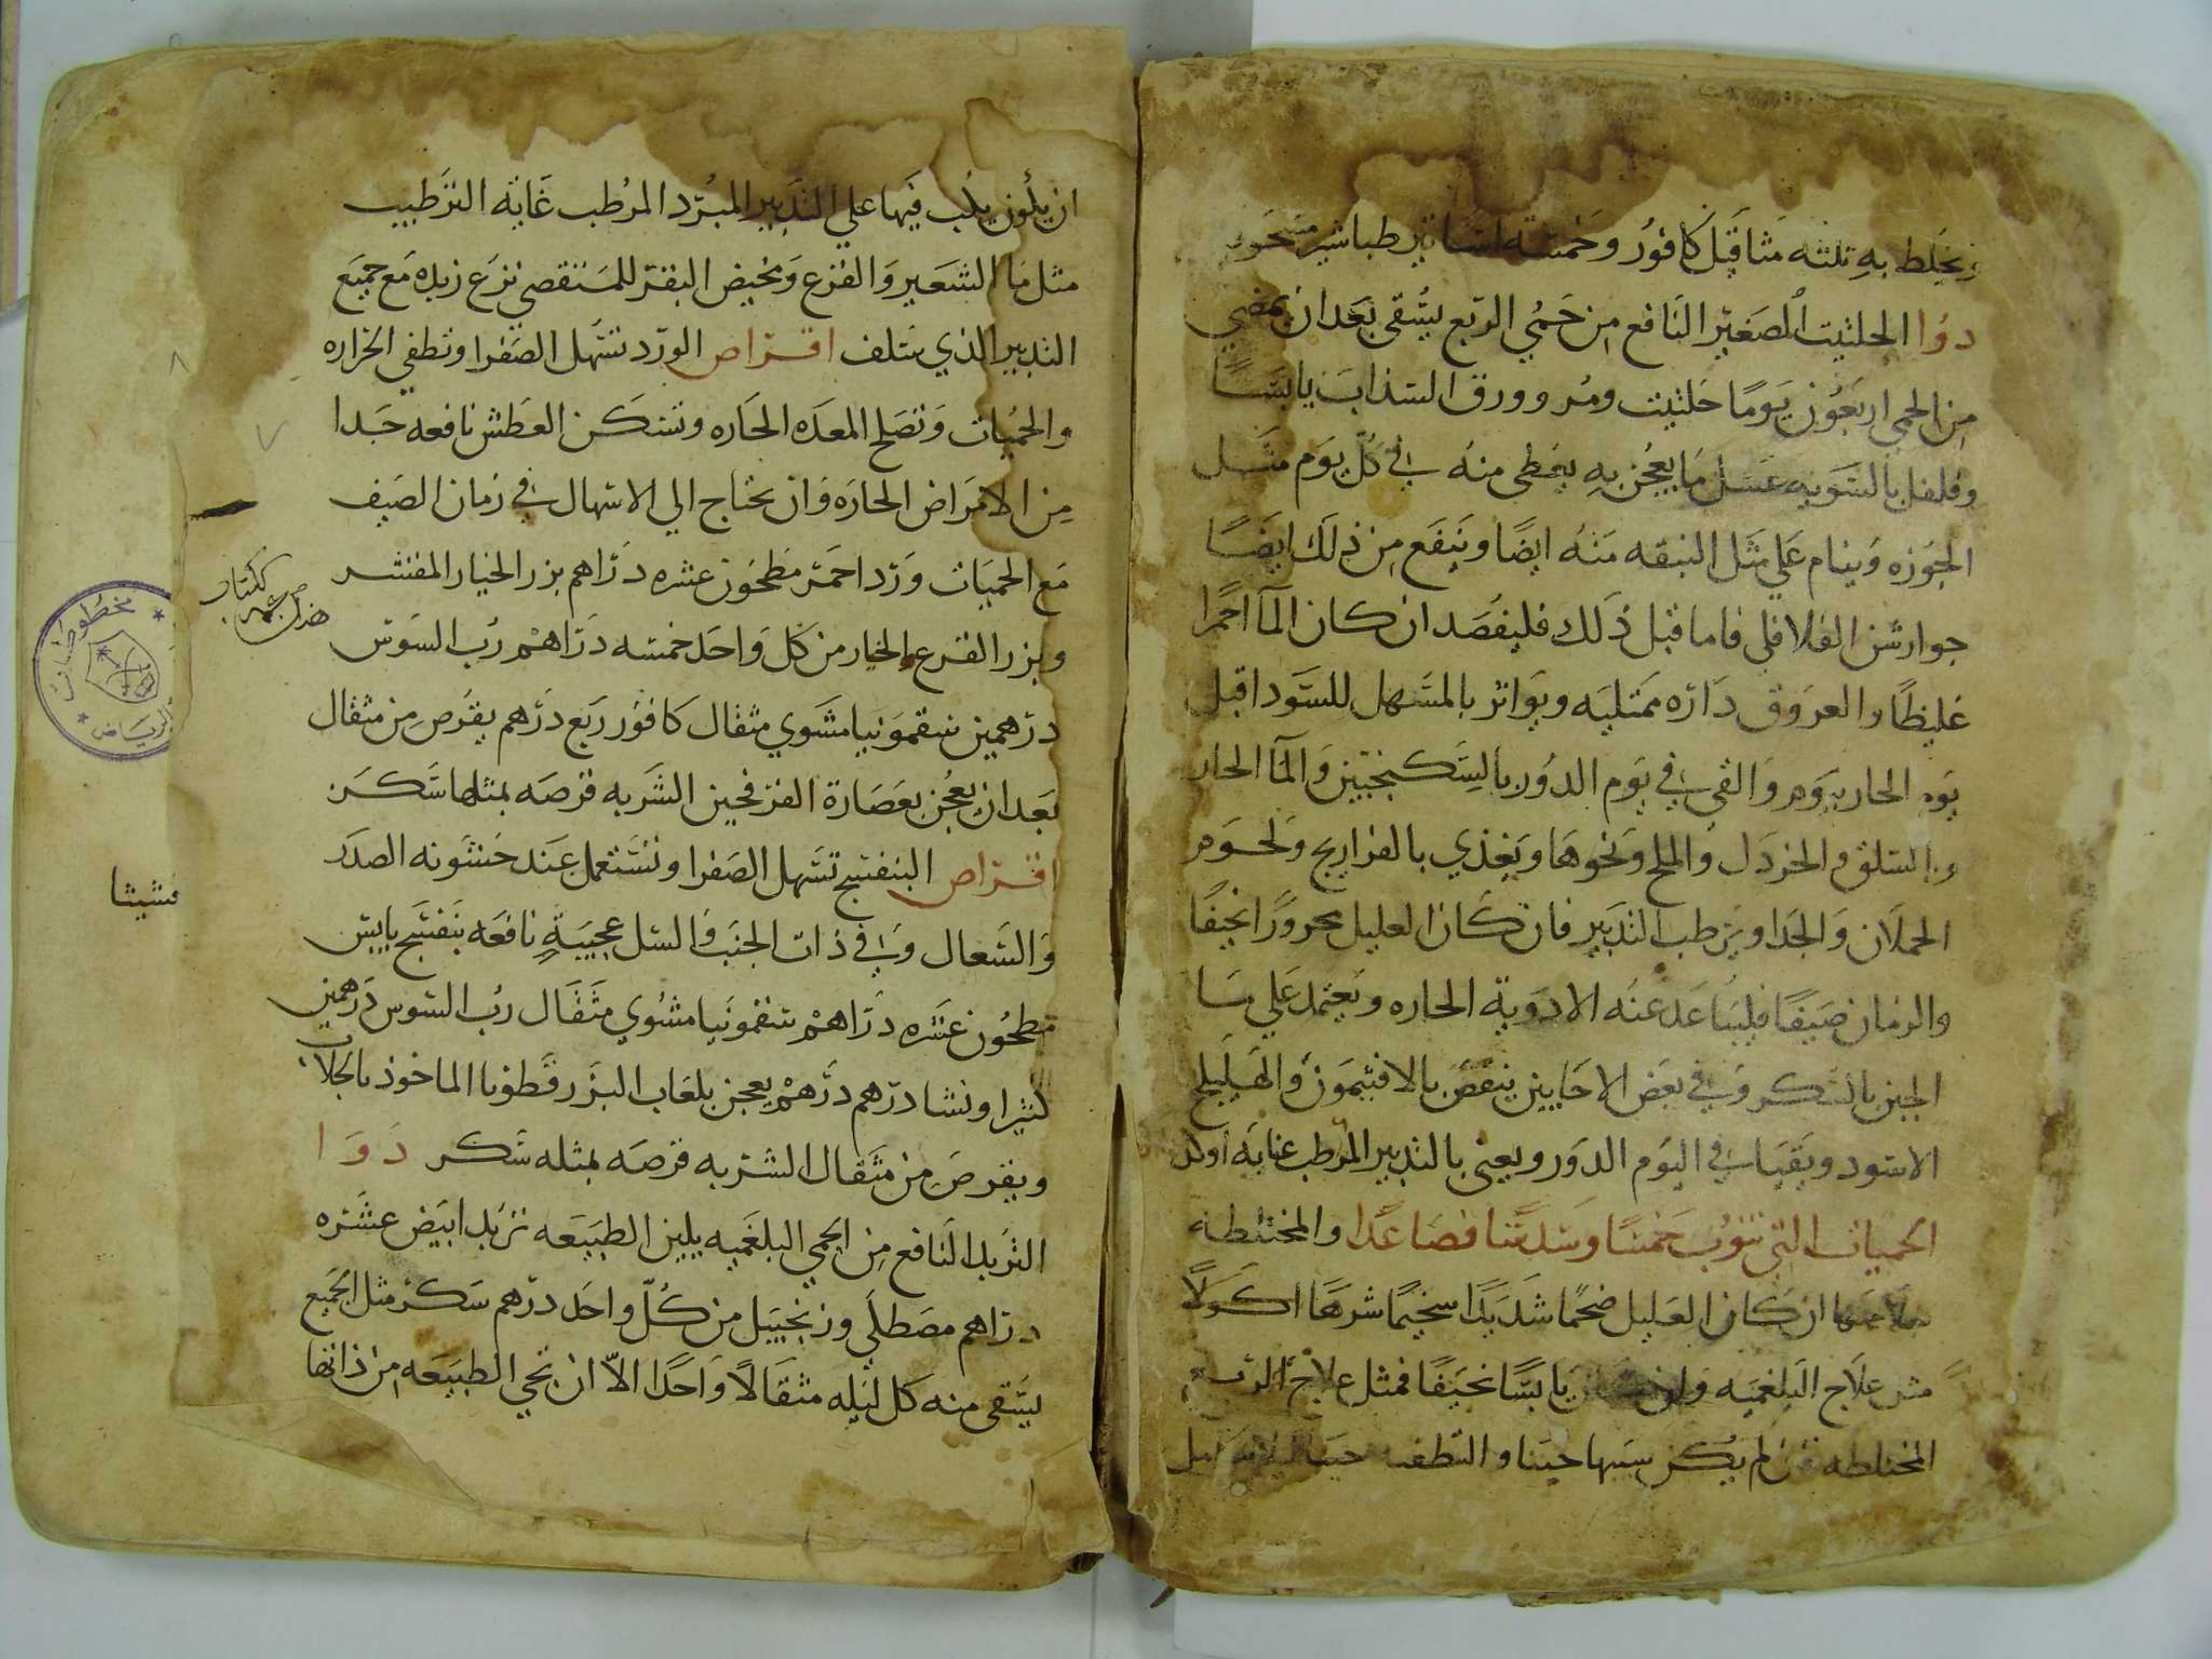 ويخلط به ثلثه مثاقيل كافور وخمسة اساتير طباشير مسحوق
دوا الحلتيت الصغير النافع من حمي الربع يسقي بعد ان يمضي
من الحمي اربعون يوما حلتيت ومر وورق السذاب يابسا
وفلفل بالسويه عسل ما يعجن به يعطى منه في كل يوم مثل
الجوزه وينام علي مثل النبقه منه ايضا وينفع من ذلك ايضا
جوارشن الفلافلي فاما قبل ذلك فليفصد ان كان الما احمرا
غليظا والعروق داره ممتليه ويواتر بالمسهل للسودا قبل
يوم الحار بيوم والقي في يوم الدور بالسكنجبين والما الحار
والسلق والخردل والملح ونحوها ويغذي بالفراريج ولحوم
الحملان والجدا ويرطب التدبير فان كان العليل محرورا نحيفا
والزمان صيفا فليباعد عنه الادوية الحاره ويعتمد علي ما
الجبن بالسكر وفي بعض الاحايين ينقص بالافتيمون والهليلج
الاسود ويقيا في اليوم الدور ويعني بالتدبير المرطب غايه اوكد
الحميات التي تنوب خمسا وسدسا فصاعدا والمختلطه
علاجها ان كان العليل ضخما شديدا سخيما شرها اكولا
مثل علاج البلغميه وان كان يابسا نحيفا فمثل علاج الربع
المختلطه فان لم يكن سببها حينا والتطف
ان يكون يلب فيها علي التدبير المبرد المرطب غاية الترطيب
مثل ما الشعير والقرع ومخيض البقر المستقصي نزع زبده مع جميع
التدبير الذي سلف اقراص الورد تسهل الصفرا وتطفي الحراره
والحميات وتصلح المعده الحاره وتسكن العطش نافعه جدا
من الامراض الحاره وان يحتاج الي الاسهال في زمان الصيف
مع الحميات ورد احمر مطحون عشره دراهم بزر الخيار المقشر
وبزر القرع والخيار من كل واحد خمسه دراهم رب السوس
درهمين سقمونيا مشوي مثقال كافور ربع درهم يقرص من مثقال
بعد ان يعجن بعصارة الفرفحين الشربه قرصه بمثلها سكر
اقراص البنفسج تسهل الصفرا وتستعمل عند خشونه الصدر
والسعال وفي ذات الجنب والسل عجيبة نافعه بنفسج يابس
مطحون عشره دراهم سقمونيا مشوي مثقال رب السوس درهمين
كثيرا ونشا درهم درهم يعجن بلعاب البزر قطونا الماخوذ بالجلاب
ويقرص من مثقال الشربه قرصه بمثله سكر دوا
التربد النافع من الحمي البلغميه يلين الطبيعه تربد ابيض عشره
دراهم مصطلي وزنجبيل من كل واحد درهم سكر مثل الجميع
يسقي منه كل ليله مثقالا واحدا الا ان تجي الطبيعه من ذاتها
مخطوطات
الرياض